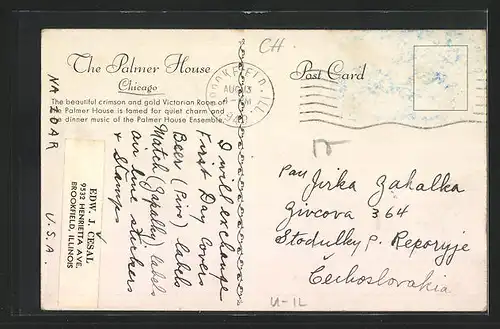 The Palmer House
Chicago
The beautiful crimson and gold Victorian Room of
the Palmer House is famed for quiet charm and
the dinner music of the Palmer House Ensemble.
CH
Post Card
BROOKFIELD, ILL.
AUG 13
NA ZDAR
U.S.A.
EDW. J. CESAL
9532 HENRIETTA AVE.
BROOKFIELD, ILLINOIS
I will exchange
First Day Covers
Beer (Pivo) labels
Match (Zapalky) labels
air line stickers
+ Stamps
Pan Jirka Zahalka
Jivcova 364
Stodulky p. Reporyje
Čechoslovakia
U-IL